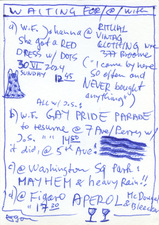 WAITING FOR/@/with
a) W.F. Johanna @ RITUAL
She got a RED VINTAG
DRESS w/ DOTS CLOTHING
30 VI 2024 377 Broome
SUNDAY 12.45 "I came by here
so often and
NEVER bought
anything")
ALL w/ J.S.:
b) W.F. GAY PRIDE PARADE
to resume @ 7 Ave/Perry w/
J.S. 14
it did, @ 5th Ave!
c) @ Washington Sq Park:
MAYHEM & heavy Rain!!
d) @ Figaro APEROL McDougal
17 30 & Bleecker